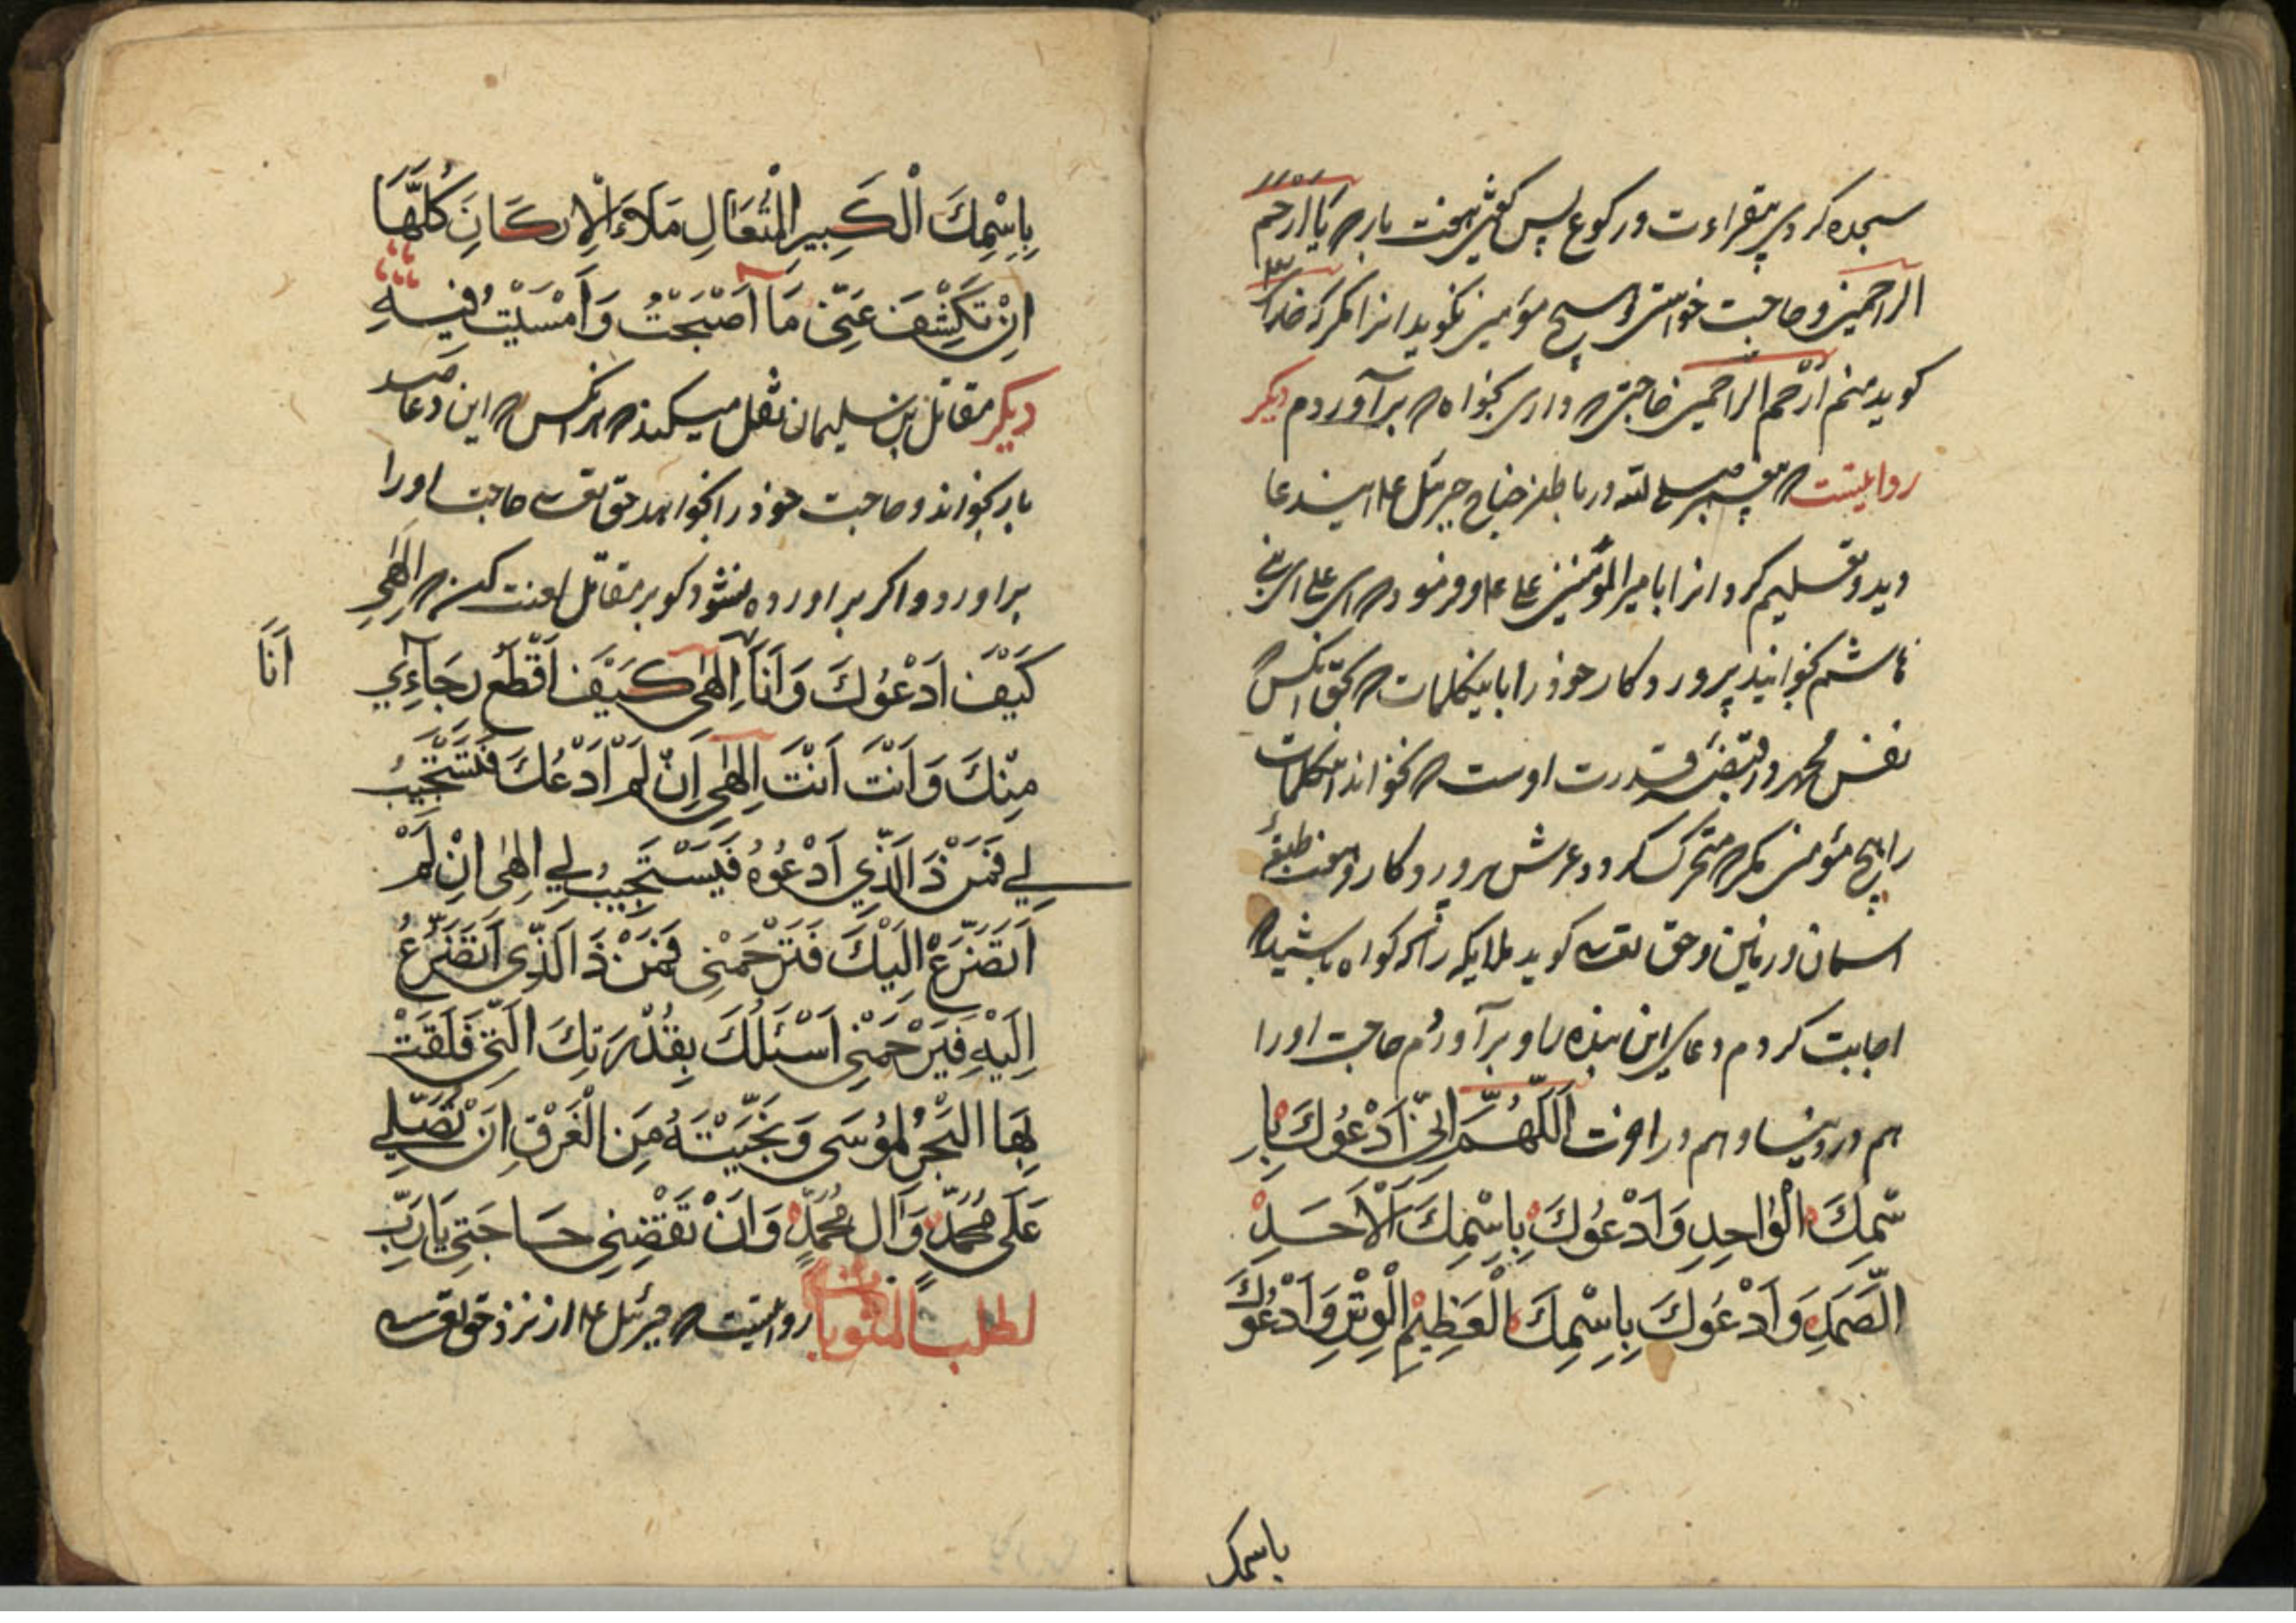 سجده کردی بقراءت و رکوع پس گفتی هفت بار که یَا اَرْحَم
الراحمین و حاجت خواستی و هیچ مؤمن نکوید انرا مکر که خدا
کوید منم اَرْحَم الراحمین حاجتی که داری بخواه که برآوردم دیکر
روایتست که پیغمبر صلی الله در باطن جناح جبرئیل ع این دعا
دید و تسلیم کرد انرا با میرالمؤمنین علی ع و فرمود که ای علی ای بنی
هاشم بخوانید پرورودکار خود را باینکلمات که بحق انکس که
نفس محمد در قبضهٔ قدرت اوست که نخواند این کلمات
را هیچ مؤمن مکر که متحرک کردد عرش پروردکار و هفت طبقهٔ
اسمان و زمین و حق تعالی کوید ملایکه را که کواه باشید که
اجابت کردم دعای این بنده را و برآوردم حاجت او را
هم در دنیا و هم در اخرت اَللّٰهُمَّ اِنّی اَدْعُوكَ بِا
سْمِكَ الْوٰاحِدِ وَاَدْعُوكَ بِاِسْمِكَ اَلْاَحَدِ
الصَّمَدِ وَاَدْعُوكَ بِاِسْمِكَ الْعَظِیْمِ الْوِتْرِ وَاَدْعُوكَ
باسمک
بِاِسْمِكَ الْكَبِیرِ الْمُتَعَالِ مَلَاءَ الْاَركَانَ كُلَّهَا
اِنْ تَكْشِفَ عَنّی مَا اَصْبَحْتُ وَاَمْسَیْتُ فِیهِ
دیکر مقاتل بن سلیمان نقل میکند که هر انکس که این دعا صد
بار بخواند و حاجت خود را بخواهد حق تعالی حاجت او را
براورد و اکر براورده نشود کو بر مقاتل لعنت کن که اِلٰهی
كَیْفَ اَدْعُوكَ وَاَنَا اِلٰهی كَیْفَ اَقْطَعُ رَجَآئی
اَنَا
مِنْكَ وَاَنْتَ اَنْتَ اِلٰهی اِنْ لَمْ اَدْعُكَ فَتَسْتَجِیْبُ
لی فَمَنْ ذَا الَّذِی اَدْعُوهُ فَیَسْتَجِیْبُ لی اِلٰهی اِنْ لَمْ
اَتَضَرَّعْ اِلَیْكَ فَتَرْحَمْنِی فَمَنْ ذَا الَّذِی اَتَضَرَّعُ
اِلَیْهِ فَیَرْحَمْنی اَسْئَلُكَ بِقُدْرَتِكَ الَّتی فَلَقْتَ
بِهَا الْبَحْرَ لِمُوسَی وَنَجَّیْتَهُ مِنَ الْغَرَقِ اَنْ تُصَلِّی
عَلَی مُحَمَّدٍ وَآلِ مُحَمَّدٍ وَاَنْ تَقْضِیَنِی حَاجَتِی یَا رَبِّ
لطلب المثوبات روایتست که جبرئیل ع از نزد حق تعالی